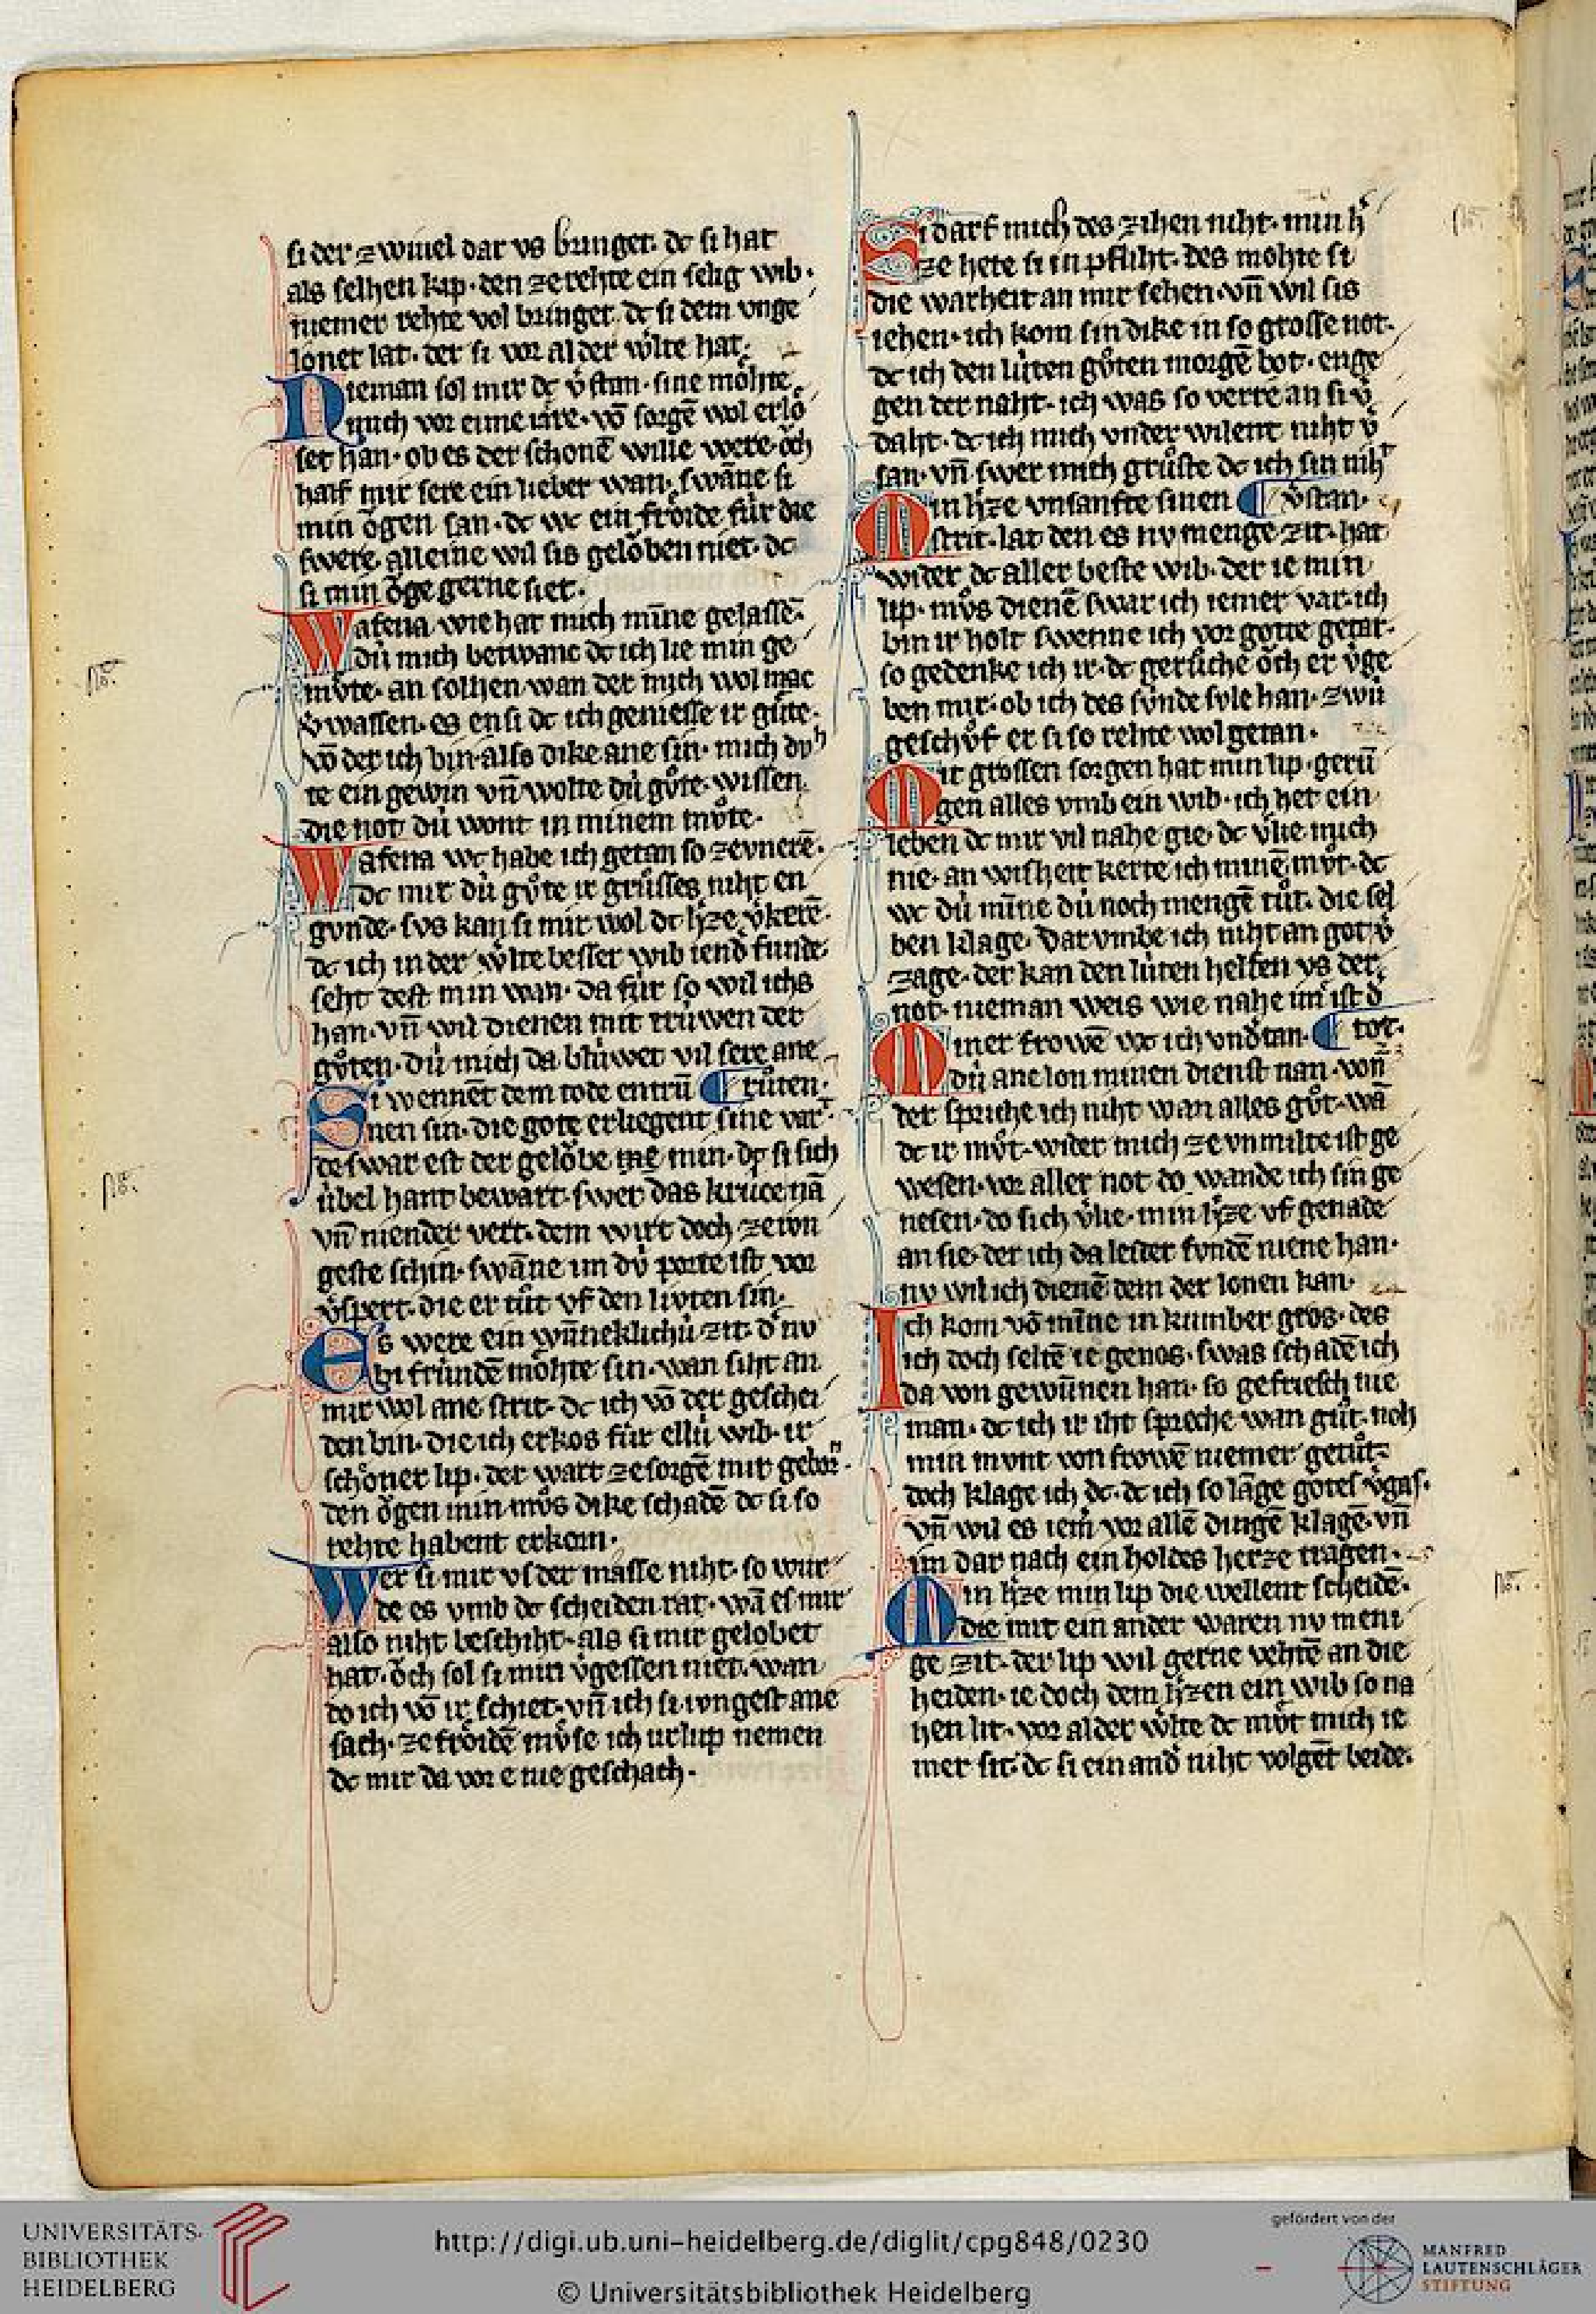 si der zwiuel dar vs bringet. dc si hat
als selhen kip. den ze rehte ein selig wib.
niemer rehte vol bringet. dc si dem vnge
lonet lat. der si vor al der wͤlte hat.
Nieman sol mir dc v̾stan. sine moͤhte
mich vor eime iare. vō sorgē wol erloͤ
set han. ob es der schonē wille were. oͮch
half mir sere ein lieber wan. swāne si
min oͮgen san. dc wc ein froͤide fúr die
swere. alleine wil sis geloͮben niet. dc
si min oͮge gerne siet.
Wafena wie hat mich mīne gelassē.
dú mich betwanc dc ich lie min ge
mvͤte. an solhen wan der mich wol mac
v̾wassen. es ensi dc ich geniesse ir guͤte.
vō der ich bin. also dike ane sin. mich dvh
te ein gewin vn̄ wolte dú guͦte. wissen
die not dú wont in minem mvͦte.
Wafena wc habe ich getan so ze vnerē.
dc mir dú guͦte ir gruͦsses niht en
gvnde. svs kan si mir wol dc h̾ze v̾kerē.
dc ich in der wͤlte besser wib iend̾ funde.
seht dest min wan. da fúr so wil ichs
han. vn̄ wil dienen mit trúwen der
guͦten. dú mich da blúwet vil sere ane
Si wennēt dem tode entrū ¶ ruͦten.
nen sin. die gote erliegent sine vart.
de swar est der geloͮbe me min. dc si sich
úbel hant bewart. swer das krúce nā
vn̄ niender vert. dem wirt doch ze ivn
geste schin. swāne im dv́ porte ist vor
v̾spert. die er tuͦt vf den lúten sin.
Es were ein wūneklichú zit. d̾ nv
bi frúndē moͤhte sin. wan siht an
mir wol ane strit. dc ich vō der geschei
den bin. die ich erkos fúr ellú wib. ir
schoͤner lip. der wart ze sorgē mir geborn.
den oͮgen min mvͦs dike schadē dc si so
rehte habent erkorn.
Wer si mir vs der masse niht. so wur
de es vmb dc scheiden rat. wā es mir
also niht beschiht. als si mir gelobet
hat. oͮch sol si min v̾gessen niet. wan
do ich vō ir schiet. vn̄ ich si ivngest ane
sach. ze froͤidē mvͤse ich urlup nemen
dc mir da vor e nie geschach.
Si darf mich des zihen niht. min h̾
ze hete si in pfliht. des mohte si
die warheit an mir sehen. vn̄ wil sis
iehen. ich kom sin dike in so grosse not.
dc ich den lúten guͦten morgē bot. enge
gen der naht. ich was so verre an si v̾
daht. dc ich mich vnder wilent niht v̾
san. vn̄ swer mich gruͦste dc ich sin niht
Min h̾ze vnsanfte sinen ¶ v̾stan.
strit. lat den es nv menge zit. hat
wider dc aller beste wib. der ie min
lip. mvͦs dienē swar ich iemer var. ich
bin ir holt swenne ich vor gotte getar.
so gedenke ich ir. dc geruͦche oͮch er v̾ge
ben mir. ob ich des súnde svle han. zwú
geschvͦf er si so rehte wol getan.
Mit grossen sorgen hat min lip. gerū
gen alles vmb ein wib. ich het ein
leben dc mir vil nahe gie. dc v̾lie mich
nie. an wisheit kerte ich minē mvͦt. dc
wc dú mīne dú noch mengē tuͦt. die sel
ben klage. Dar vmbe ich niht an got v̾
zage. der kan den lúten helfen vs der
not. nieman weis wie nahe im ist d̾
Miner frowē wc ich vnd̾tan. ¶ tot.
dú ane lon minen dienst nan. von
der spriche ich niht wan alles guͦt. wā
dc ir mvͦt. wider mich ze vnmilte ist ge
wesen. vor aller not do wande ich sin ge
nesen. do sich v̾lie. min h̾ze vf genade
an sie. der ich da leider fvndē niene han.
nv wil ich dienē dem der lonen kan.
Ich kom vō mīne in kumber gros. des
ich doch seltē ie genos. swas schadē ich
da von gewūnen han. so gefriesch nie
man. dc ich ir iht spreche wan guͦt. noh
min mvnt von frowē niemer getuͦt.
doch klage ich dc. dc ich so lāge gotes v̾gas.
vn̄ wil es iem̾ vor allē dingē klagē. vn̄
im dar nach ein holdes herze tragen.
Min h̾ze min lip die wellent scheidē.
die mit ein ander waren nv meni
ge zit. der lip wil gerne vehtē an die
heiden. ie doch dem h̾zen ein wib so na
hen lit. vor al der wͤlte dc mvͤt mich ie
mer sit. dc si ein and̾ niht volgēt beide.
UNIVERSITÄTS-
BIBLIOTHEK
HEIDELBERG
http://digi.ub.uni-heidelberg.de/diglit/cpg848/0230
© Universitätsbibliothek Heidelberg
gefördert von der
MANFRED
LAUTENSCHLÄGER
STIFTUNG